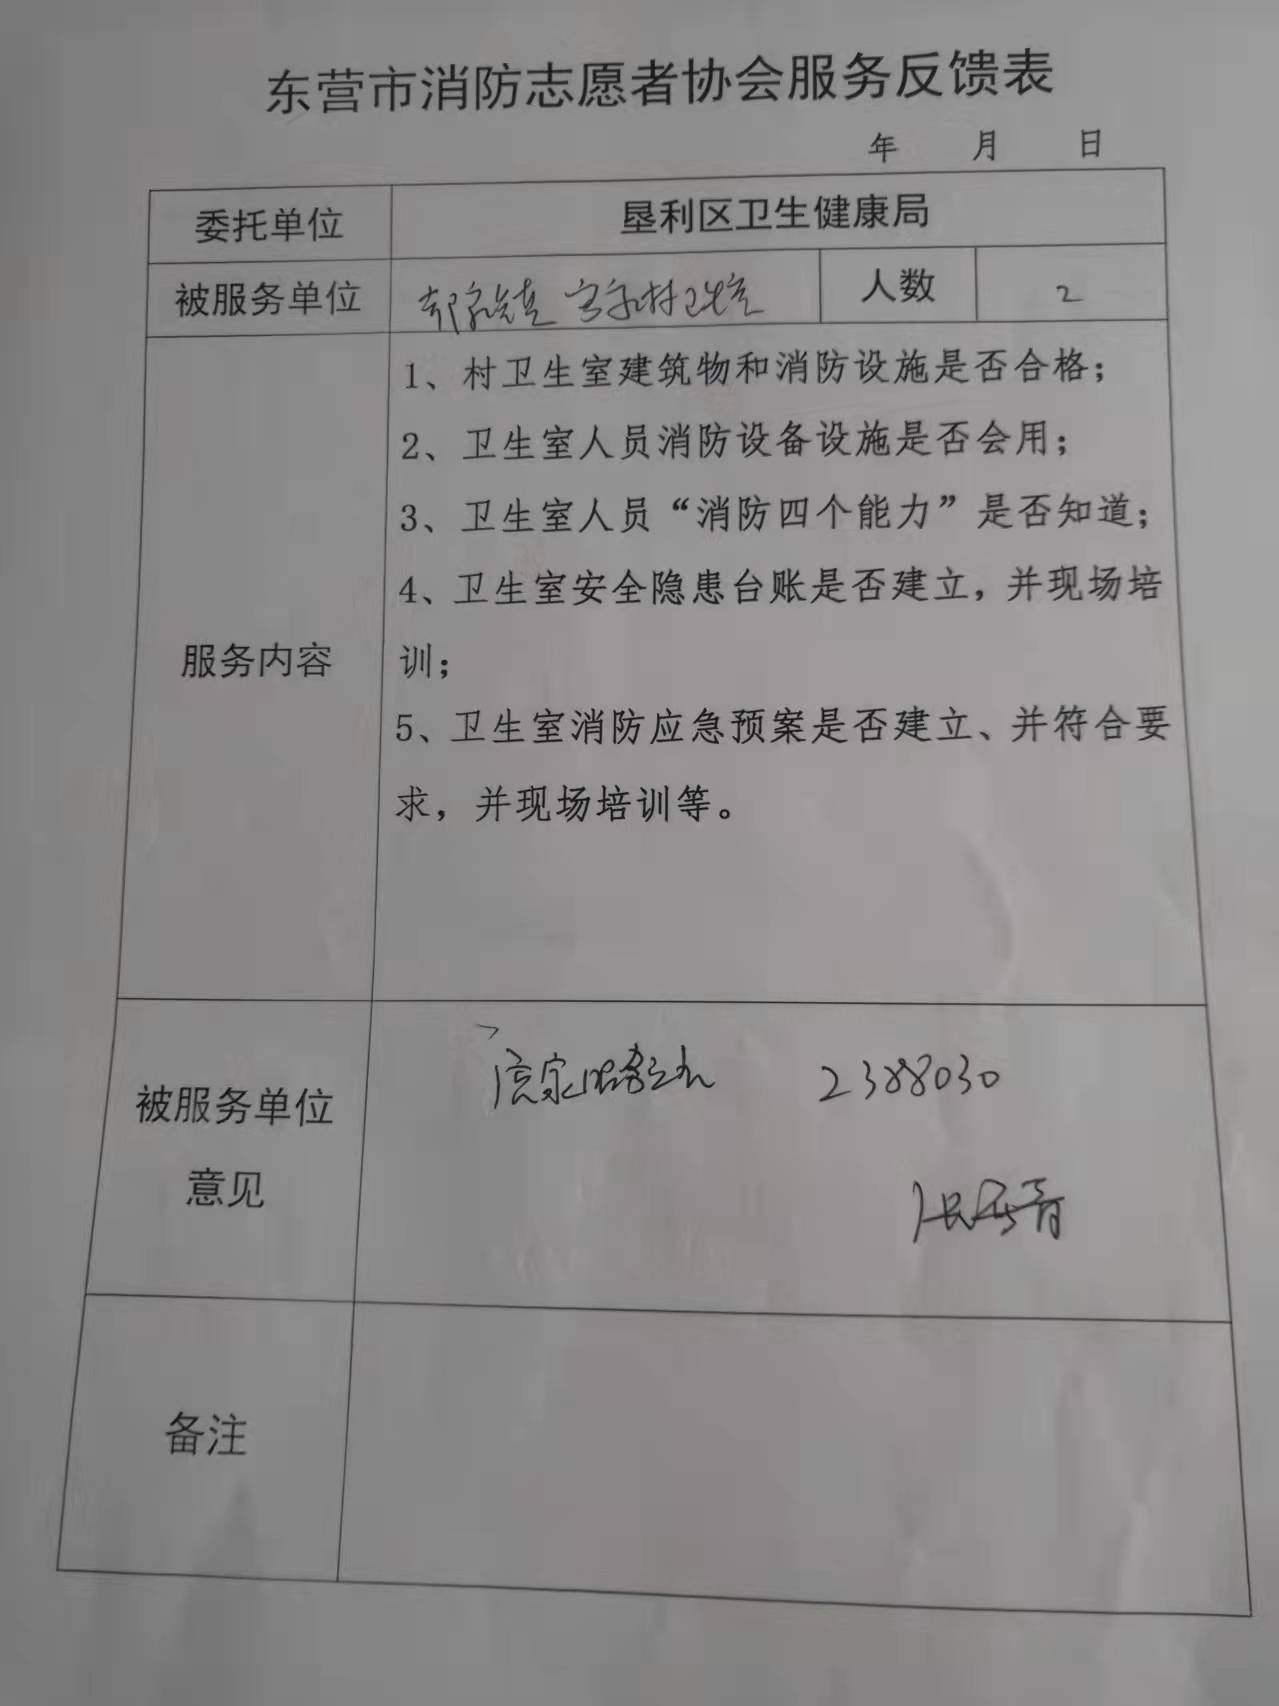 东营市消防志愿者协会服务反馈表
年 月 日
委托单位 垦利区卫生健康局
被服务单位 郝家镇 村卫生室 人数 2
服务内容
1、村卫生室建筑物和消防设施是否合格；
2、卫生室人员消防设备设施是否会用；
3、卫生室人员“消防四个能力”是否知道；
4、卫生室安全隐患台账是否建立，并现场培
训；
5、卫生室消防应急预案是否建立、并符合要
求，并现场培训等。
被服务单位
意见
2388030
备注